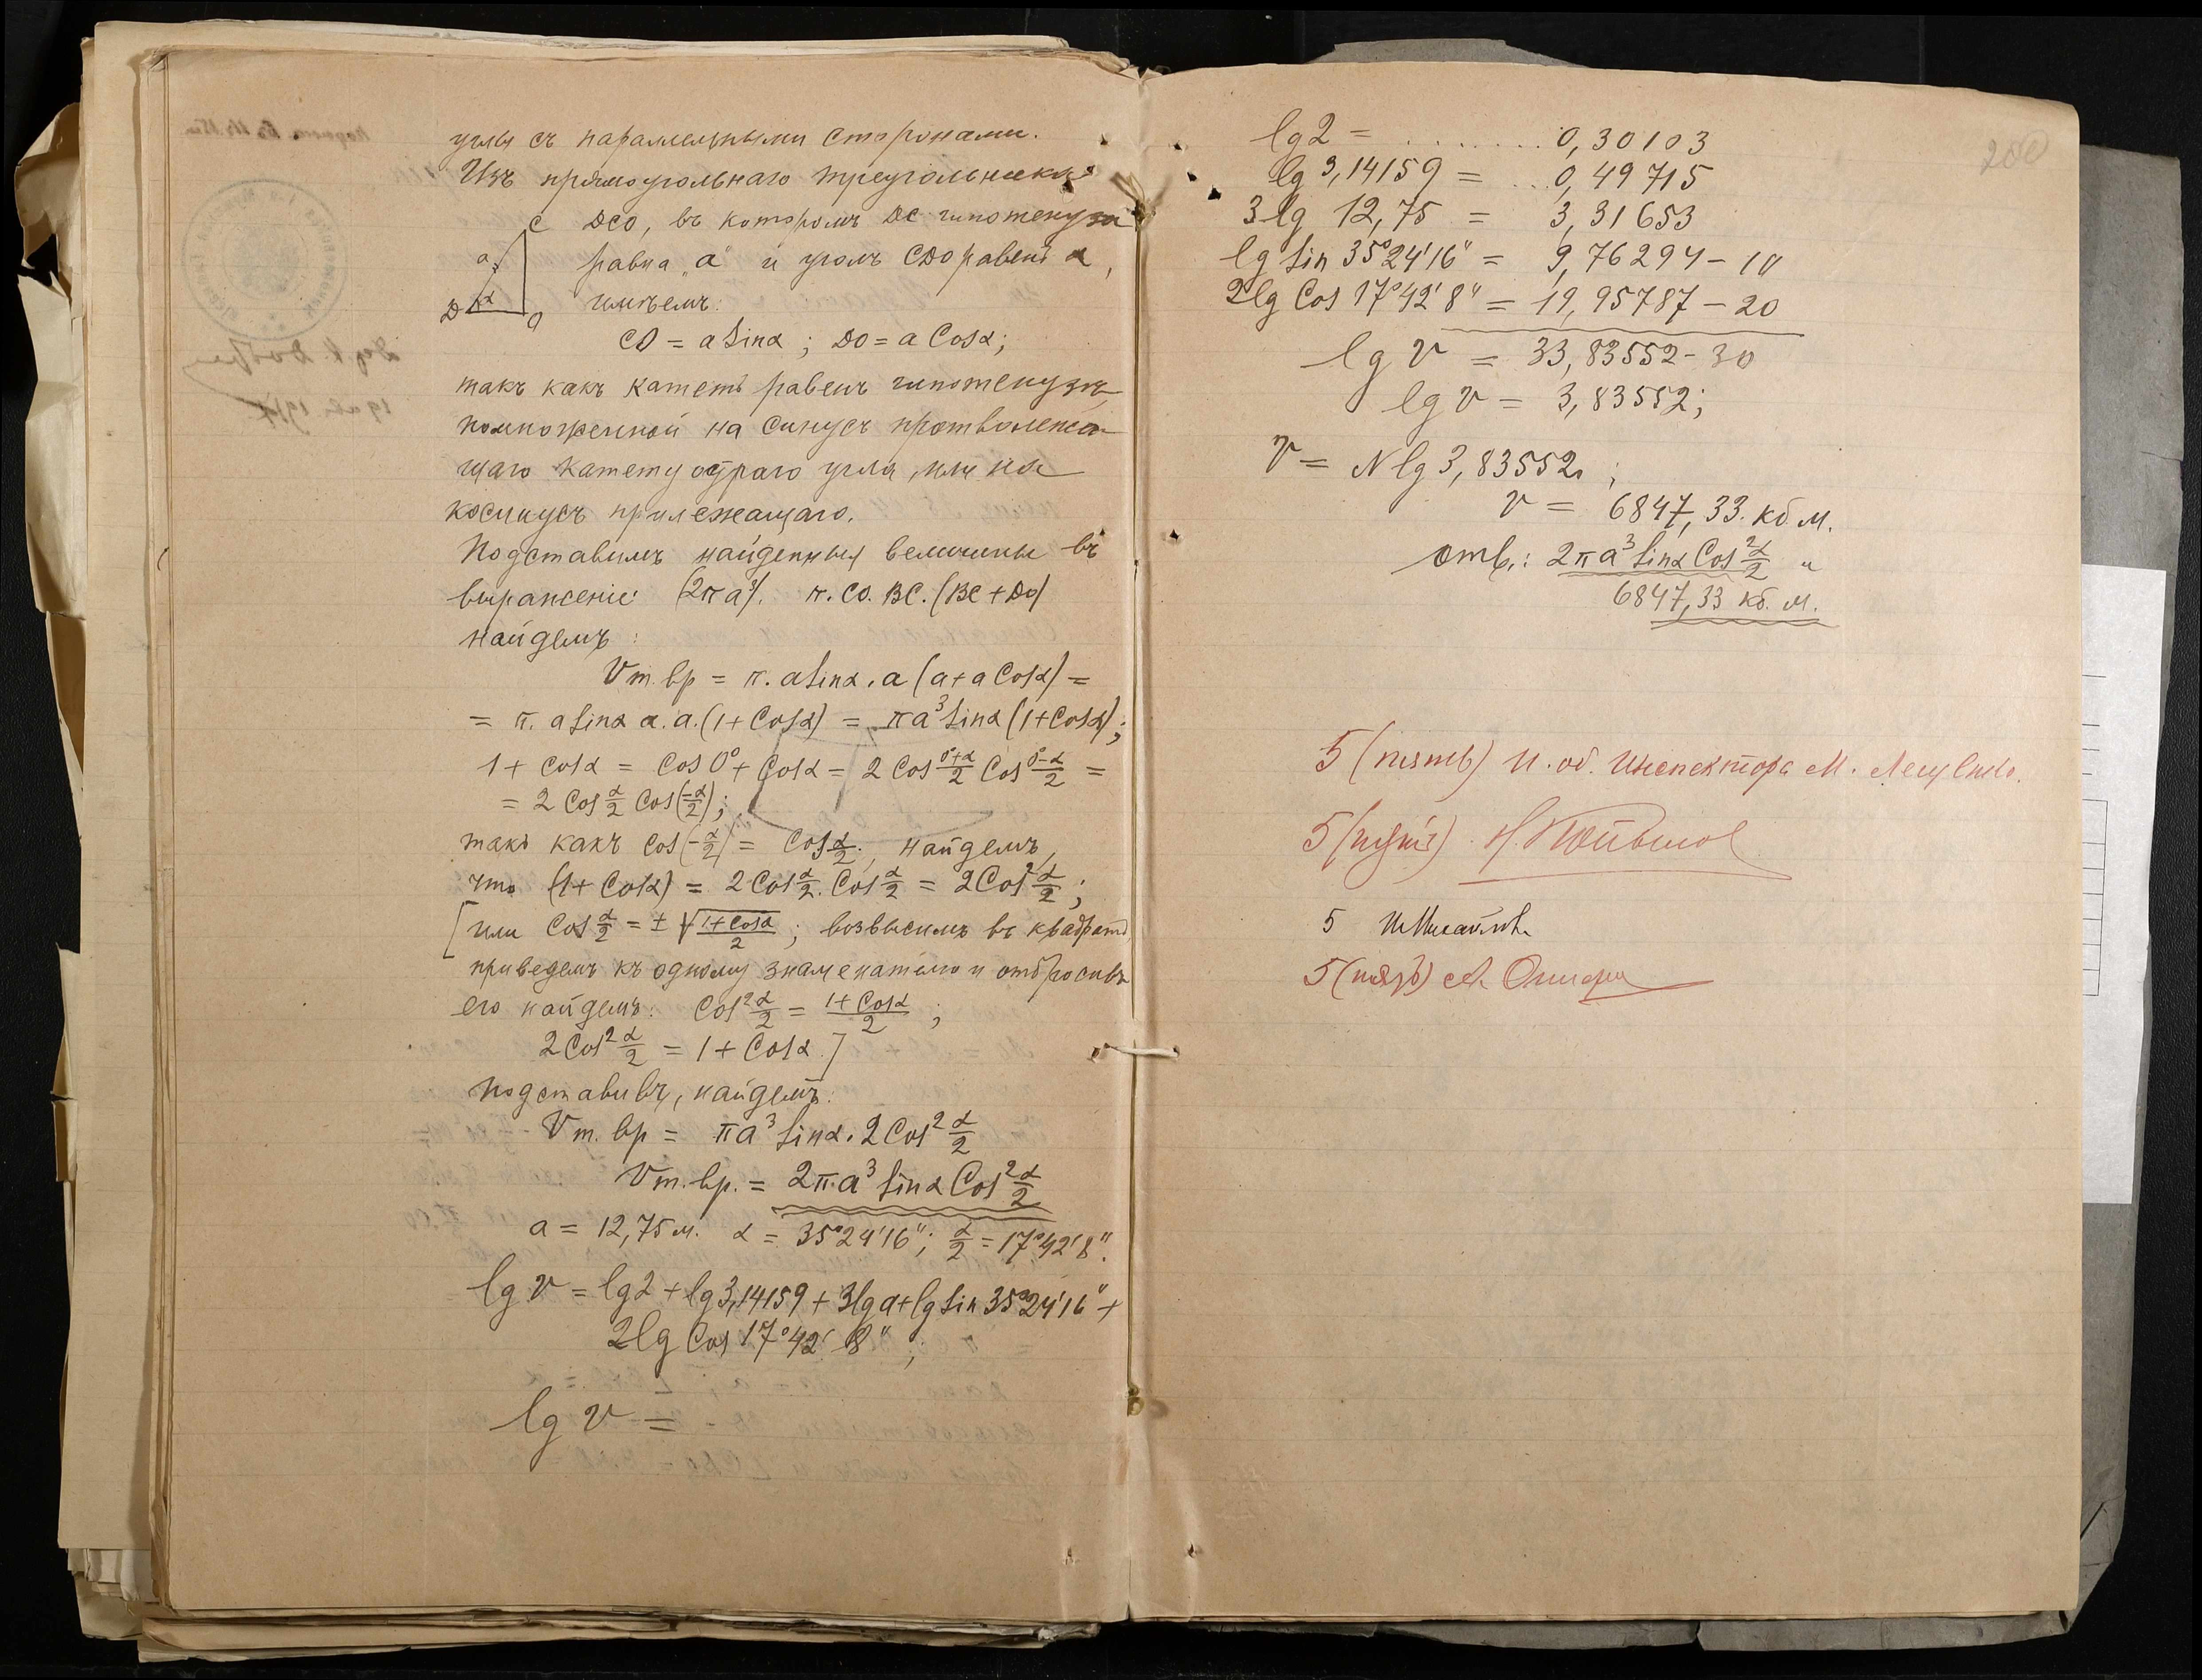 углы съ параллельными сторонами.
Изъ прямоугольнаго треугольника
DCO, въ которомъ DC гипотенуза
равна „a“ и уголъ CDO равенъ α,
имѣемъ:
C
a
D α O
CO = a Sinα ; DO = a Cosα;
такъ какъ катетъ равенъ гипотенузѣ,
помноженной на синусъ противолежа-
щаго катету остраго угла, или на
косинусъ прилежащаго.
Подставимъ найденныя величины въ
выраженіе: (2πa³). π. CO. BC. (BC + DO)
найдемъ:
Vт. вр = π. a Sinα. a (a + a Cosα) =
= π. a Sinα a. a. (1 + Cosα) = πa³ Sinα (1 + Cosα);
1 + Cosα = Cos 0° + Cosα = 2 Cos (0°+α)/2 Cos (0°-α)/2 =
= 2 Cos α/2 Cos (-α/2);
такъ какъ Cos(-α/2) = Cos α/2; найдемъ,
что (1 + Cosα) = 2 Cos α/2. Cos α/2 = 2 Cos² α/2;
[или Cos α/2 = ± √(1+Cosα)/2 ; возвысимъ въ квадратъ
приведемъ къ одному знаменателю и отбросивъ
его найдемъ: Cos² α/2 = (1 + Cosα)/2 ;
2 Cos² α/2 = 1 + Cosα.]
Подставивъ, найдемъ:
Vт. вр = πa³ Sinα. 2 Cos² α/2
Vт. вр. = 2π.a³ Sinα Cos² α/2
a = 12,75 м. α = 35°24'16"; α/2 = 17°42'8".
lg v = lg2 + lg3,14159 + 3lg a + lg Sin 35°24'16" +
2lg Cos 17°42' 8" ;
lg v =
200
lg 2 = ......... 0,30103
lg 3,14159 = ... 0,49715
3lg 12,75 = 3,31653
lg Sin 35°24'16" = 9,76294 - 10
2lg Cos 17°42'8" = 19,95787 - 20
lg v = 33,83552 - 30
lg v = 3,83552;
v = Nlg 3,83552 ;
v = 6847,33. кб. м.
отв.: 2πa³ Sinα Cos² α/2 и
6847,33 кб. м.
5 (пять) И. об. Инспектора М.
5 (пять) Н.
5
5 (пять) А.